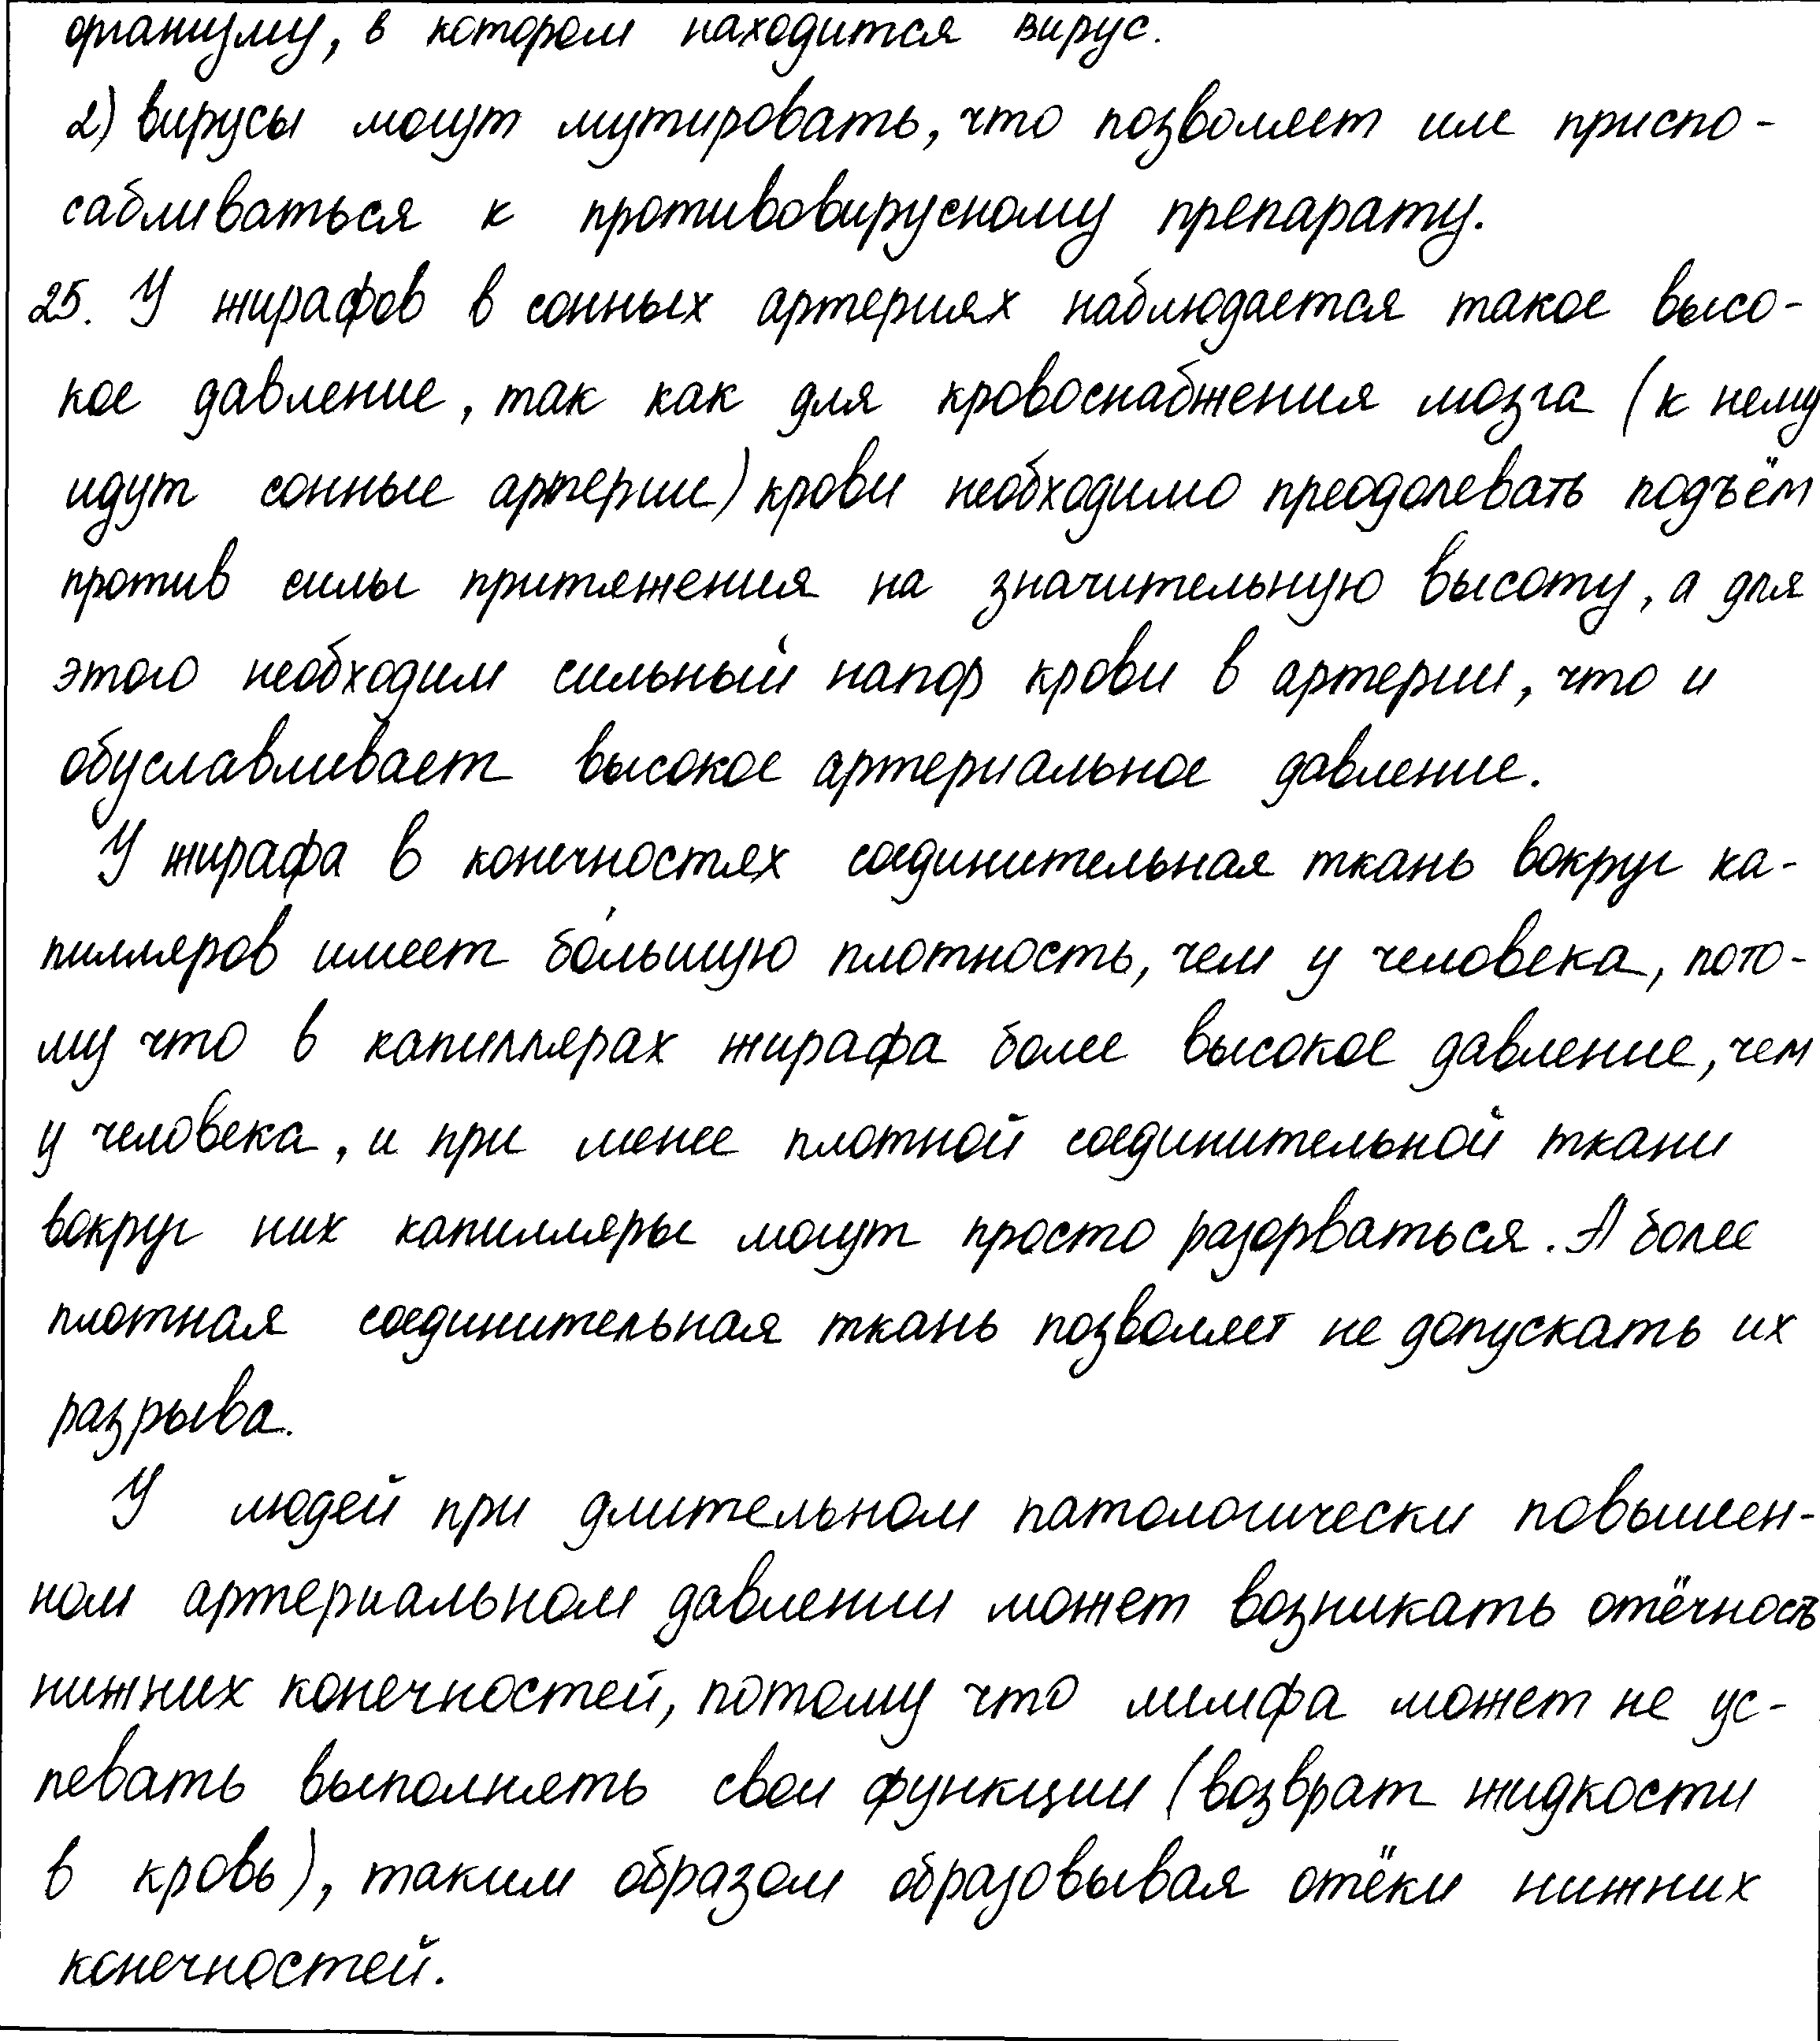 организму, в котором находится вирус.
2) вирусы могут мутировать, что позволяет им приспо-
сабливаться к противовирусному препарату.
25. У жирафов в сонных артериях наблюдается такое высо-
кое давление, так как для кровоснабжения мозга (к нему
идут сонные артерии) крови необходимо преодолевать подъём
против силы притяжения на значительную высоту, а для
этого необходим сильный напор крови в артерии, что и
обуславливает высокое артериальное давление.
У жирафа в конечностях соединительная ткань вокруг ка-
пилляров имеет бо́льшую плотность, чем у человека, пото-
му что в капиллярах жирафа более высокое давление, чем
у человека, и при менее плотной соединительной ткани
вокруг них капилляры могут просто разорваться. А более
плотная соединительная ткань позволяет не допускать их
разрыва.
У людей при длительном патологически повышен-
ном артериальном давлении может возникать отёчность
нижних конечностей, потому что лимфа может не ус-
певать выполнять свои функции (возврат жидкости
в кровь), таким образом образовывая отёки нижних
конечностей.